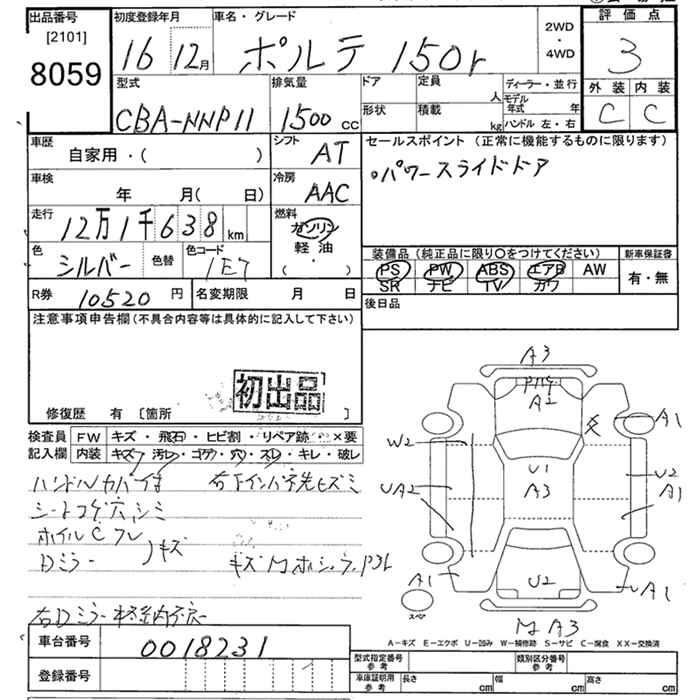 出品番号
[2101]
8059
初度登録年月
16 12月
車名・グレード
ポルテ 150r
2WD
・
4WD
評価点
3
外装 内装
C C
型式
CBA-NNP11
排気量
1500 CC
ドア
定員
人
ディーラー・並行
モデル年式 年
形状
積載
kg
ハンドル 左・右
車歴
自家用・( )
シフト
AT
セールスポイント (正常に機能するものに限ります)
。パワースライドドア
車検
年 月( 日)
冷房
AAC
走行
12万1千638km
燃料
ガソリン
軽油
( ・ )
色
シルバー
色替
色コード
1E7
装備品 (純正品に限り○をつけてください)
PS PW ABS エアB AW
SR ナビ TV カワ
新車保証書
有・無
R券 10520円
名変期限 月 日
後日品
注意事項申告欄 (不具合内容等は具体的に記入して下さい)
初出品
修復歴 有 [箇所 ]
検査員 FW キズ・飛石・ヒビ割・リペア跡・×要
記入欄 内装 キズ・汚レ・コゲ・穴・スレ・キレ・破レ
シートコゲ穴シミ
ホイルCフレ
Dミラー 〕キズ
車台番号 0018231
登録番号
A3
A2
A1
W2
U1
A3
U2
A1
UA2
A1
U2
A1
スペア
M A3
A-キズ E-エクボ U-凹み W-補修跡 S-サビ C-腐食 XX-交換済
型式指定番号
参考
類別区分番号
参考
車庫証明用
参考
長さ cm 幅 cm 高さ cm